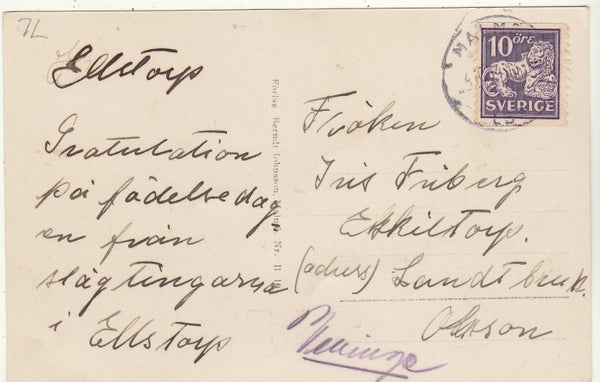 7L
Ellstorp
Gratulation
på födelsedag
en från
slägtingarna
i Ellstorp
Förlag Berndt Johnsson, Malmö. Nr. B
MALMÖ
10 ÖRE
SVERIGE
Fröken
Iris Friberg
Eskilstorp.
(adress) Landtbruk.
Olsson
Vellinge